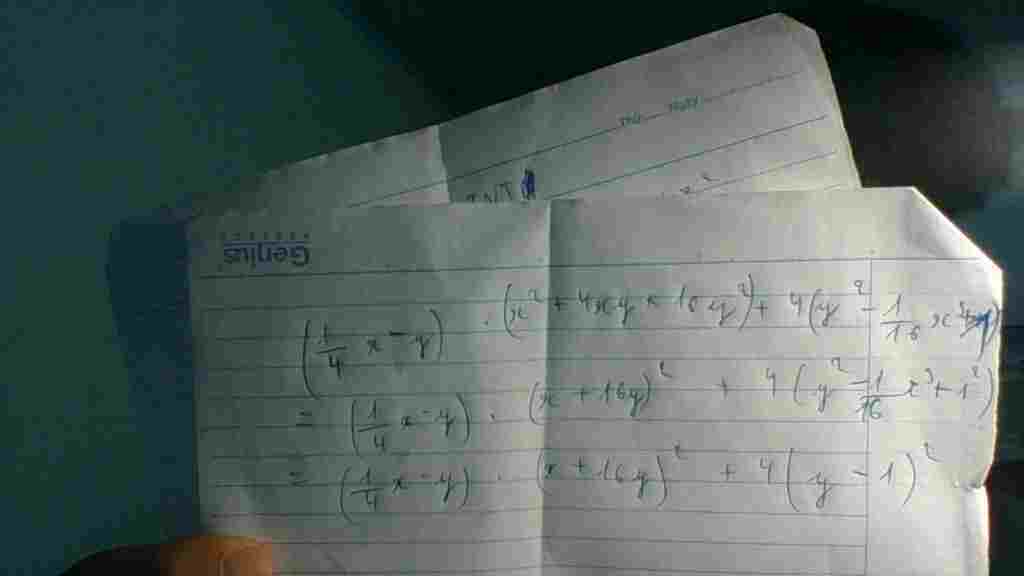 Genius
(1/4 x - y) . (x² + 4xy + 16y²) + 4(y² - 1/16 x³
= (1/4 x - y) . (x + 16y)² + 4(y² - 1/16 x³ + 1²)
= (1/4 x - y) . (x + 16y)² + 4(y - 1)²